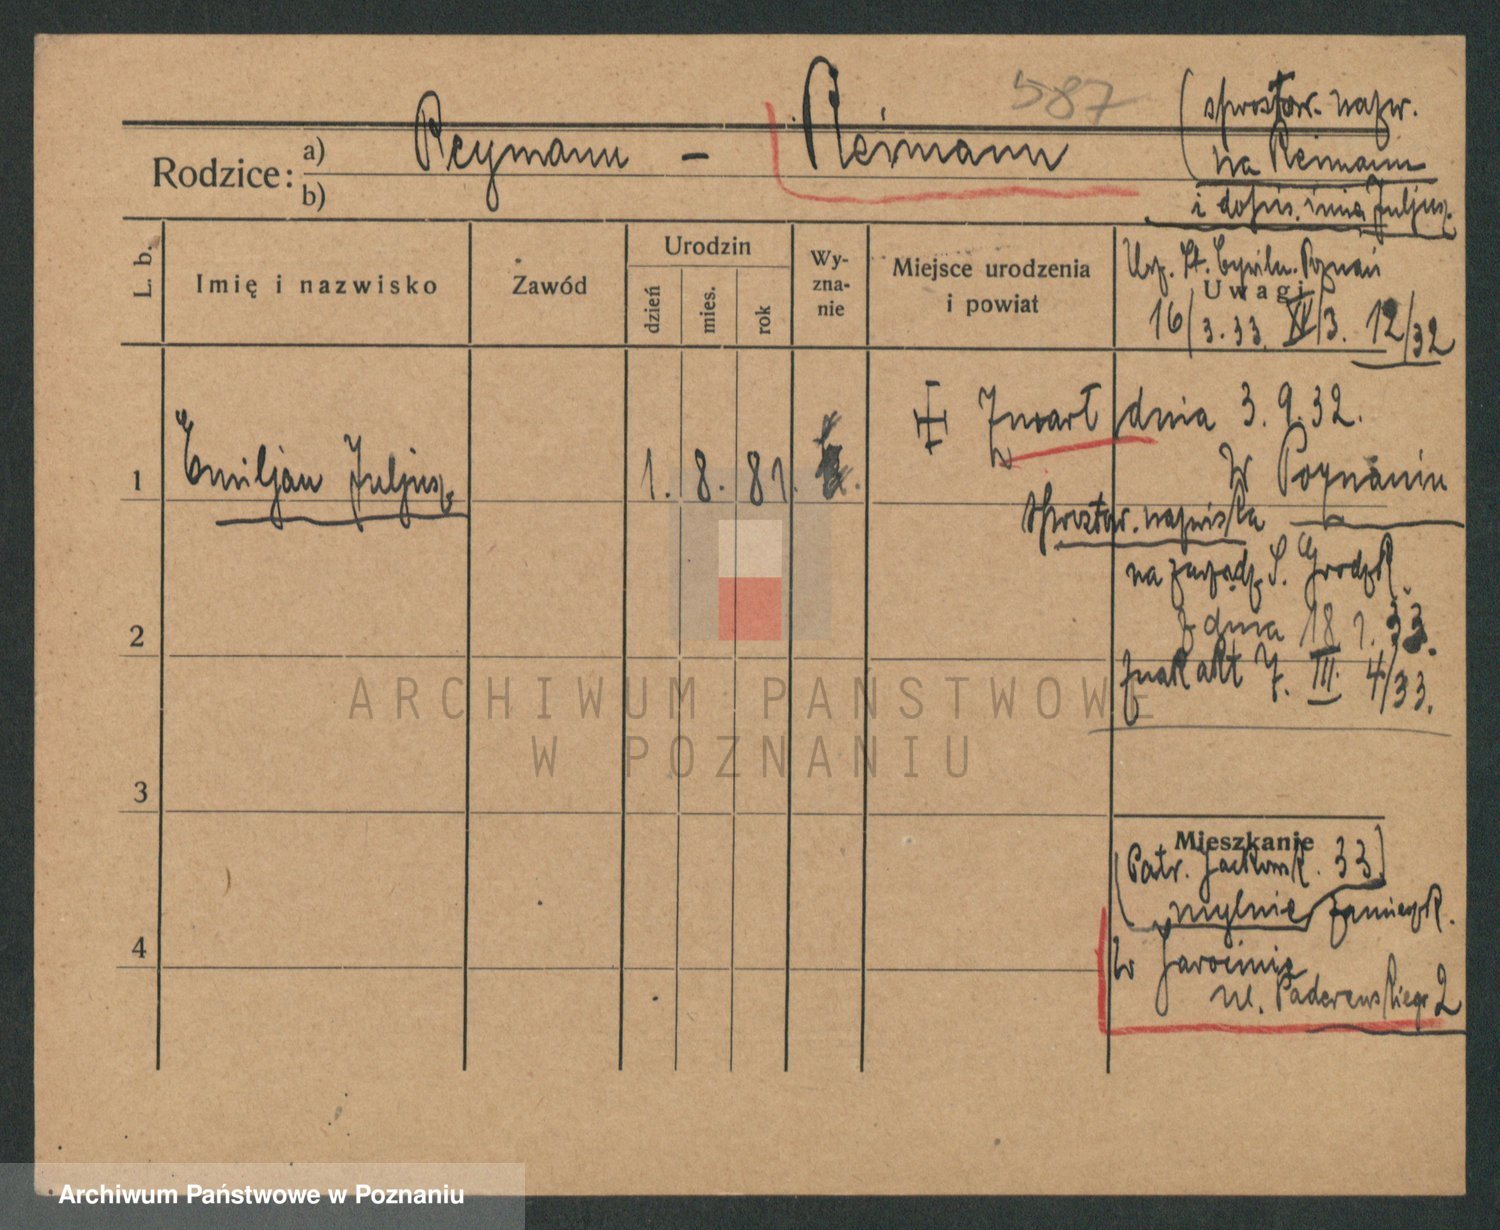 587
(sprostow. nazw.
Rodzice: a) Reymann - Reimann
na Reimann
b)
i dopis. imię Juljusz.
L. b.
Imię i nazwisko
Zawód
Urodzin
dzień
mies.
rok
Wy-
zna-
nie
Miejsce urodzenia
i powiat
Urz. St. Cywiln. Poznań
Uwagi
16/3.33. IV/3. 12/32
1 Emiljan Juljusz 1. 8. 81.
Zmarł dnia 3.9.32.
w Poznaniu
sprostow. nazwiska
na zarządz. S. Grodzk.
z dnia 18 1. 33.
znak akt Z. III. 4/33.
2
3
4
Mieszkanie
(Patr. Jackowsk. 33)
mylnie zamieszk.
w Jarocinie
ul. Paderewskiego 2
ARCHIWUM PAŃSTWOWE
W POZNANIU
Archiwum Państwowe w Poznaniu